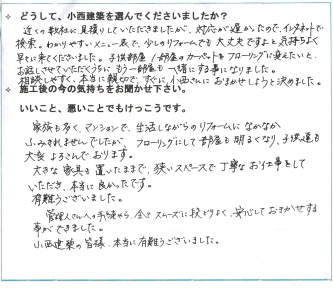 ❖ どうして、小西建築を選んでくださいましたか?
近くの数社に見積りしていただきましたが、対応が遅かったので、インタネットで
検索。わかりやすいメニュー表で、少しのリフォームでも大丈夫ですよと気持ちよく
早々に来てくださいました。子供部屋1部屋のカーペットをフローリングに変えたいと、
お話しさせていただくうちに、もう一部屋も一緒にする事になりました。
相談しやすく、本当に親切で、すぐに、小西さんにおまかせしようと決めました。
❖ 施工後の今の気持ちをお聞かせ下さい。
いいこと、悪いことでもけっこうです。
家族も多く、マンションで、生活しながらのリフォームになかなか
ふみきれませんでしたが、フローリングにして部屋も明るくなり、子供達も
大変よろこんでおります。
大きな家具も置いたままで、狭いスペースで丁寧なお仕事をして
いただき、本当に良かったです。
有難うございました。
管理人さんへの手続きやら、全てスムーズに段どりよく、安心しておまかせする
事ができました。
小西建築の皆様、本当に有難うございました。